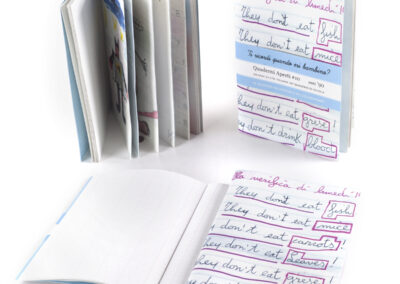 They don't eat fish
They don't eat mice
Ti ricordi quando eri bambino?
Quaderni Aperti #10
anni '90
They don't eat grese!
They don't drink blood
la verifica di lunedì!!
They don't eat fish
They don't eat mice
They don't eat carrots!
They don't eat leaves!
They don't eat grese!